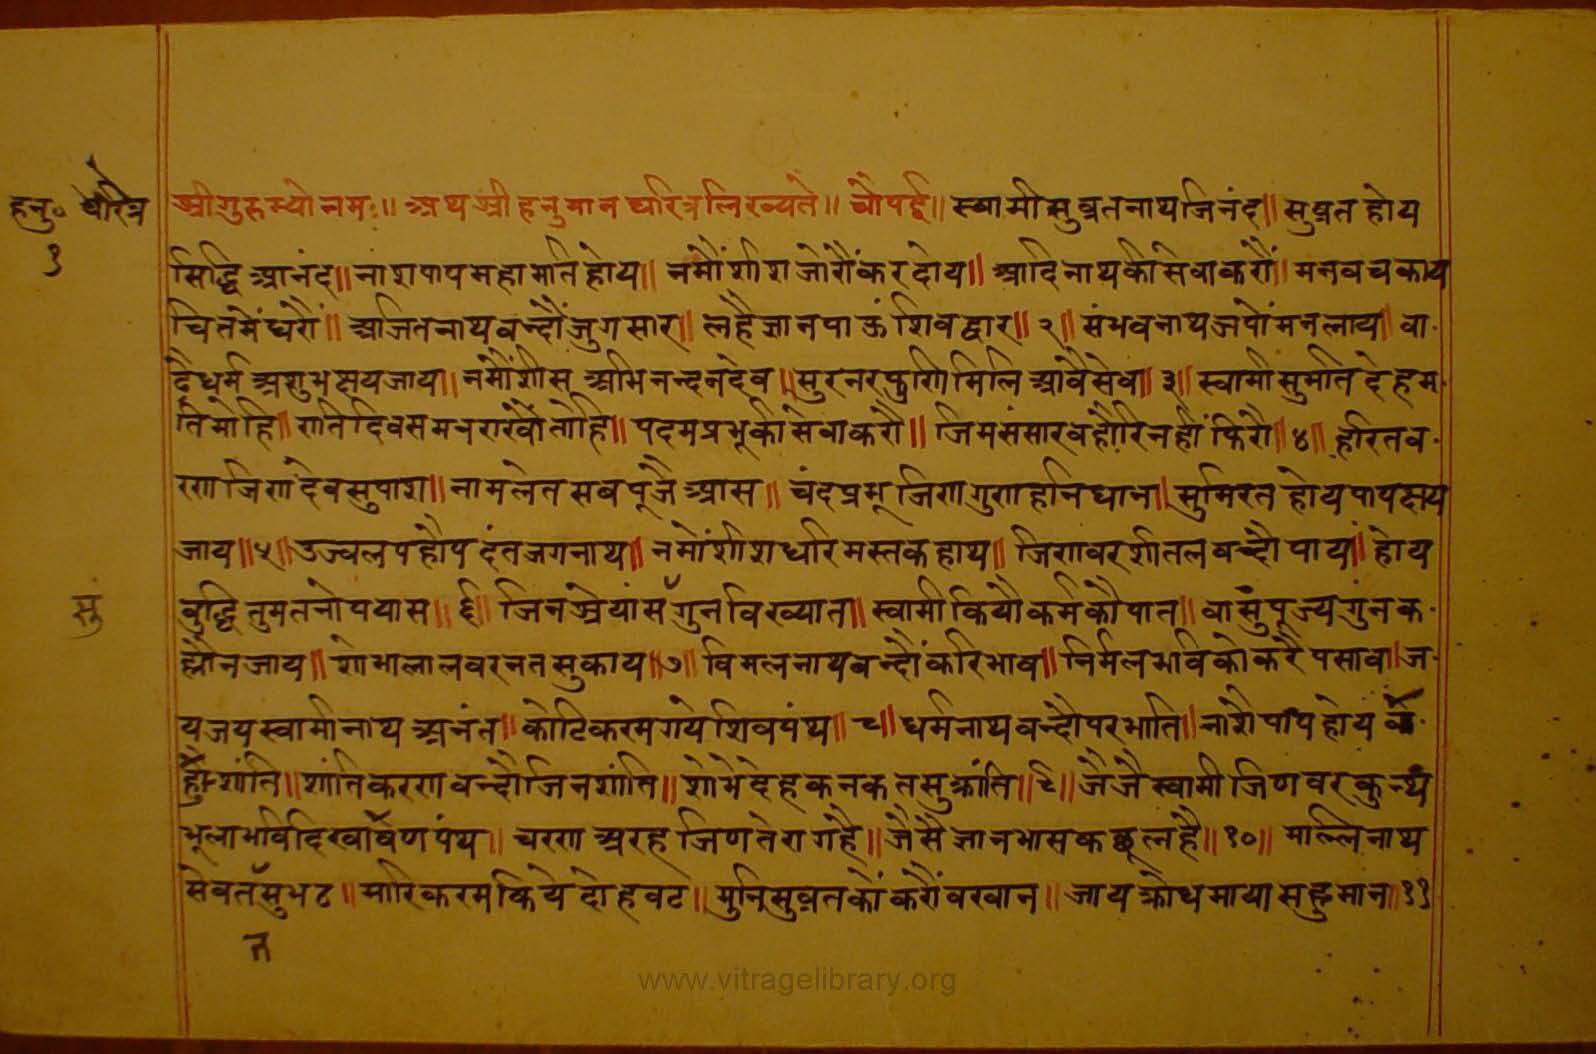 हनु० चरित्र
१
श्रीगुरुभ्यो नमः॥ अथ श्री हनुमान चरित्र लिख्यते॥ चौपई॥ स्वामी सुव्रतनाथ जिनंद॥ सुव्रत होय
सिद्धि आनंद॥ नाश पाप महा मति होय॥ नमौं शीश जोरौं कर दोय॥ आदि नाथ की सेवा करौं॥ मन वच काय
चित मैं धरौं॥ अजित नाथ वन्दौं जुग सार॥ लहै ज्ञान पाऊं शिव द्वार॥ २॥ संभव नाथ जपौं मन लाय॥ वा-
ढै धर्म अशुभ क्षय जाय॥ नमौं शीस अभिनन्दन देव॥ सुर नर फुणि मिलि आवै सेव॥ ३॥ स्वामी सुमति देह म-
ति मोहि॥ राति दिवस मन राखौं तोहि॥ पदम प्रभू की सेवा करौ॥ जिम संसार वहौरि नहीं फिरौ॥ ४॥ हरित व-
रण जिण देव सुपाश॥ नाम लेत सब पूजै आस॥ चंद प्रभू जिण गुणह निधान॥ सुमिरत होय पाप क्षय
जाय॥ ५॥ उज्वल पहौप दंत जगनाथ॥ नमों शीश धरि मस्तक हाथ॥ जिणवर शीतल वन्दौ पाय॥ होय
वुद्धि तुम तनो पयास॥ ६॥ जिन श्रेयांस गुन विख्यात॥ स्वामी कियौ कर्म कौ पात॥ वासुपूज्य गुन क-
ह्यौ न जाय॥ शोभा लाल वरन तसु काय॥ ७॥ विमल नाथ वन्दौं करि भाव॥ निर्मल भवि को करै पसाव॥ ज-
य जय स्वामी नाथ अनंत॥ कोटि करम गये शिव पंथ॥ ८॥ धर्मनाथ वन्दौ परभाति॥ नाशै पाप होय
शांति॥ शांति करण वन्दौ जिन शांति॥ शोभे देह कनक तसु क्रांति॥ ९॥ जै जै स्वामी जिणवर कुन्थ
भूला भवि दिखावण पंथ॥ चरण अरह जिण तेरा गहै॥ जैसै ज्ञान भास कछू लहै॥ १०॥ मल्लिनाथ
सेवत सुभट॥ मारि करम किये दोह वट॥ मुनिसुव्रत कौं करौं वखान॥ जाय क्रोध माया सहु मान॥ ११
सु
त
www.vitragelibrary.org